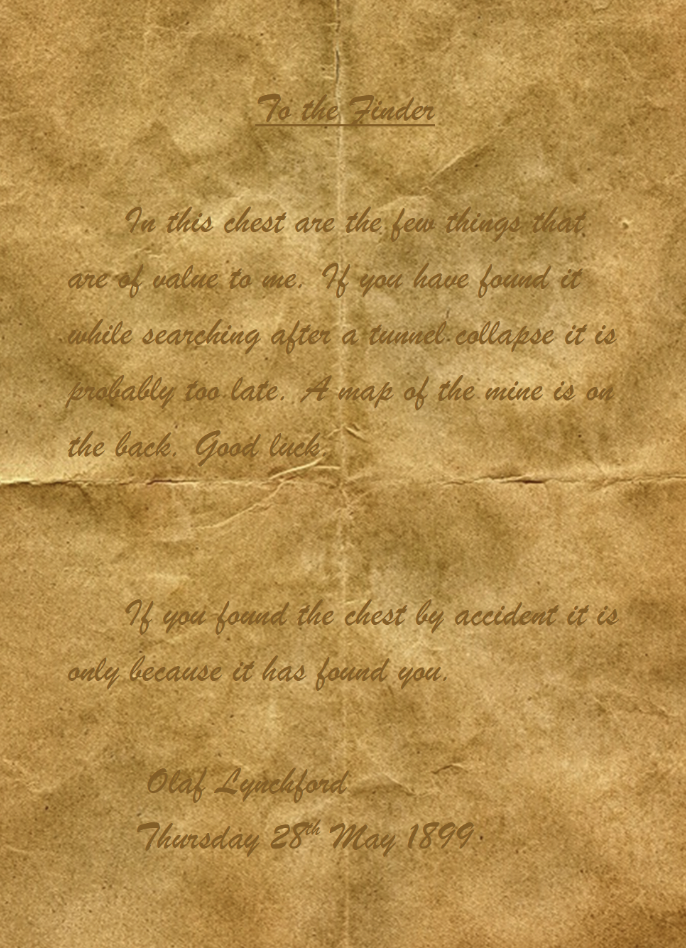 To the Finder
In this chest are the few things that
are of value to me. If you have found it
while searching after a tunnel collapse it is
probably too late. A map of the mine is on
the back. Good luck.
If you found the chest by accident it is
only because it has found you.
Olaf Lynchford
Thursday 28th May 1899